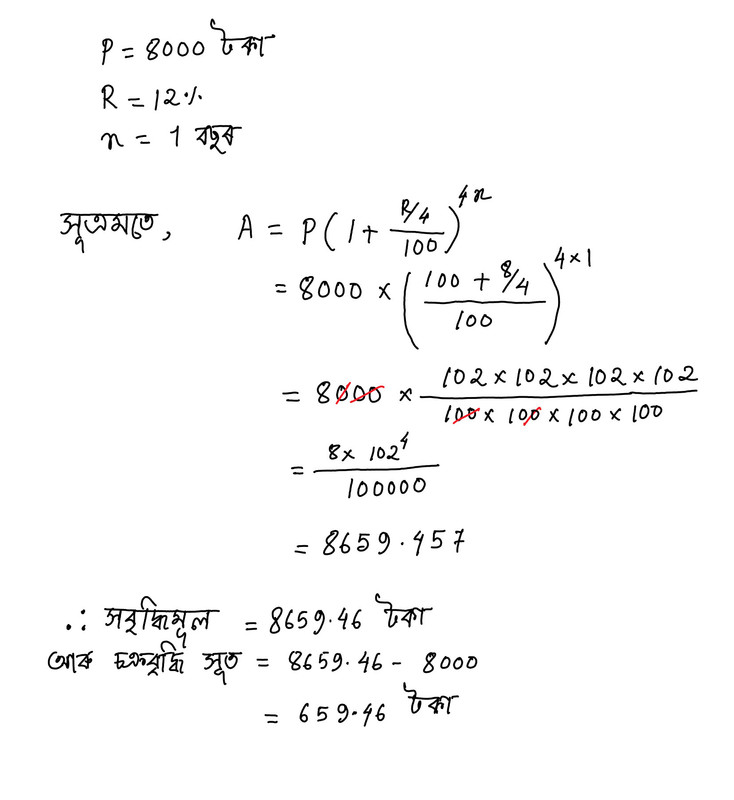 P = 8000 টকা
R = 12%
n = 1 বছৰ
সূত্ৰমতে, A = P(1 + (R/4)/100)^4n
= 8000 × ((100 + 8/4)/100)^4×1
= 8000 × (102 × 102 × 102 × 102)/(100 × 100 × 100 × 100)
= (8 × 102^4)/100000
= 8659.457
∴ সবৃদ্ধিমূল = 8659.46 টকা
আৰু চক্ৰবৃদ্ধি সূত = 8659.46 - 8000
= 659.46 টকা